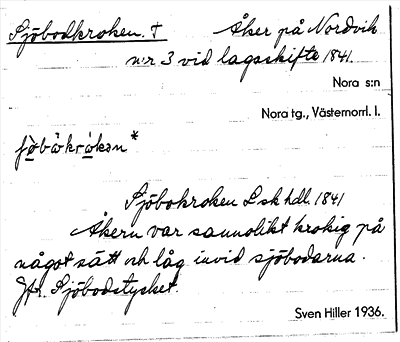 Sjöbodkroken. † Åker på Nordvik
n:r 3 vid lagaskifte 1841.
Nora s:n
Nora tg., Västernorrl. l.
Sjöbokroken L sk hdl. 1841
Åkern var sannolikt krokig på
något sätt och låg invid sjöbodarna.
Jfr. Sjöbodstycket.
Sven Hiller 1936.